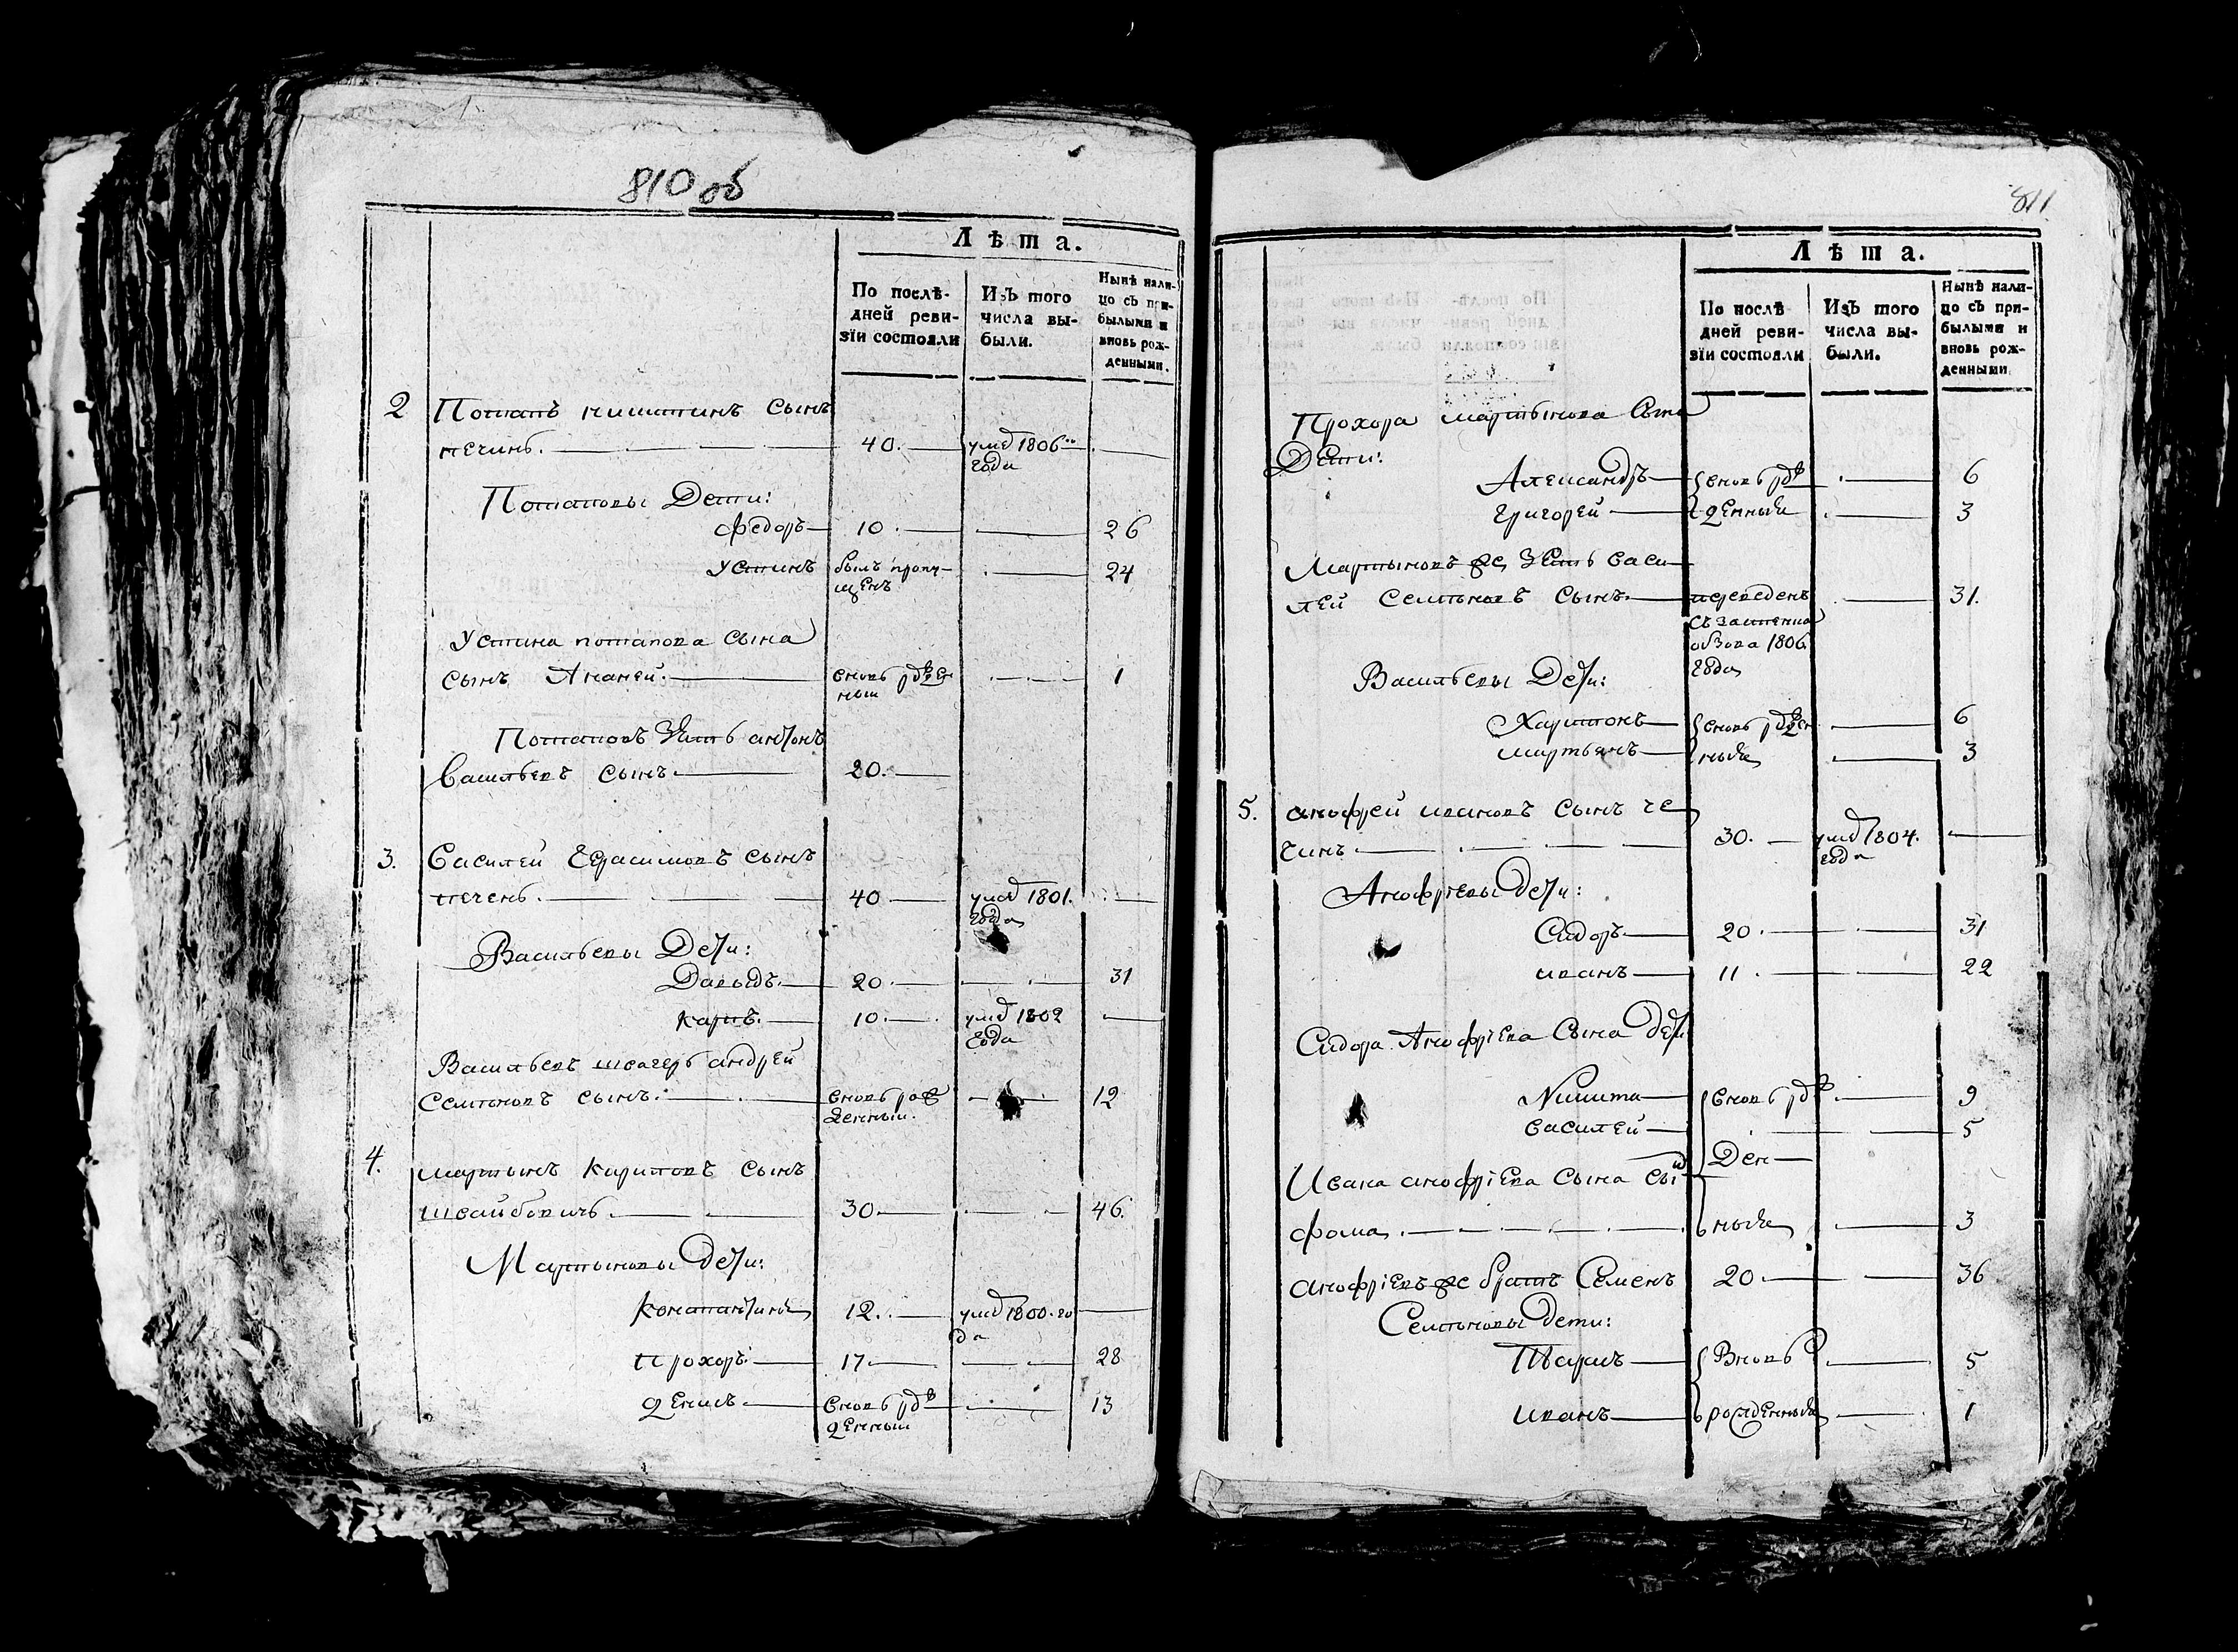 810 об
Лѣта.
По послѣ-
дней реви-
зіи состояли
Изъ того
числа вы-
были.
Нынѣ нали-
цо съ при-
былыми и
вновь рож-
денными.
2 Потапъ никитинъ сынъ
печинь. 40. умеръ 1806го
года
Потаповы Дети:
Федоръ 10. 26
Устинъ былъ пропу- 24
щенъ
Устина потапова сына
сынъ Ананей. вновь рожден 1
ный
Потаповъ Зять антонъ
Васильевъ сынъ. 20.
3. Василей Герасимовъ сынъ
печень. 40 умеръ 1801.
года
Васильевы Дети:
Давыдъ. 20. 31
Карпъ. 10. умеръ 1802
года
Васильевъ швагеръ андрей
Семеновъ сынъ. вновь рож 12
денный.
4. мартынъ Карповъ сынъ
швайбовичъ. 30 46.
Мартыновы дети:
Константинъ 12. умеръ 1800. го
да
Прохоръ 17 28
денисъ вновь рож 13
денный
811
Лѣта.
По послѣ
дней реви-
зіи состояли
Изъ того
числа вы-
были.
Нынѣ нали-
цо съ при-
былыми и
вновь рож-
денными
Прохора мартынова сына
Дети:
Александръ вновь рож 6
григорей денныя 3
Мартыновъ же Зеть васи
лей Семеновъ сынъ. переведенъ 31.
1806
года
Васильевы Дети:
Харитонъ вновь рожден 6
мартьянъ ныя 3
5. анофрей ивановъ сынъ че
чинъ. 30. умеръ 1804.
года
Анофріевы дети:
Сидоръ 20. 31
иванъ 11. 22
Сидора Анофріева Сына дети
Никита вновь рож 9
василей 5
Ден
Ивана анофріева сына сынъ
фома. ныя 3
анофріевъ же братъ Семенъ 20. 36
Семеновы дети:
Тарасъ Вновь 5
иванъ рожденныя 1